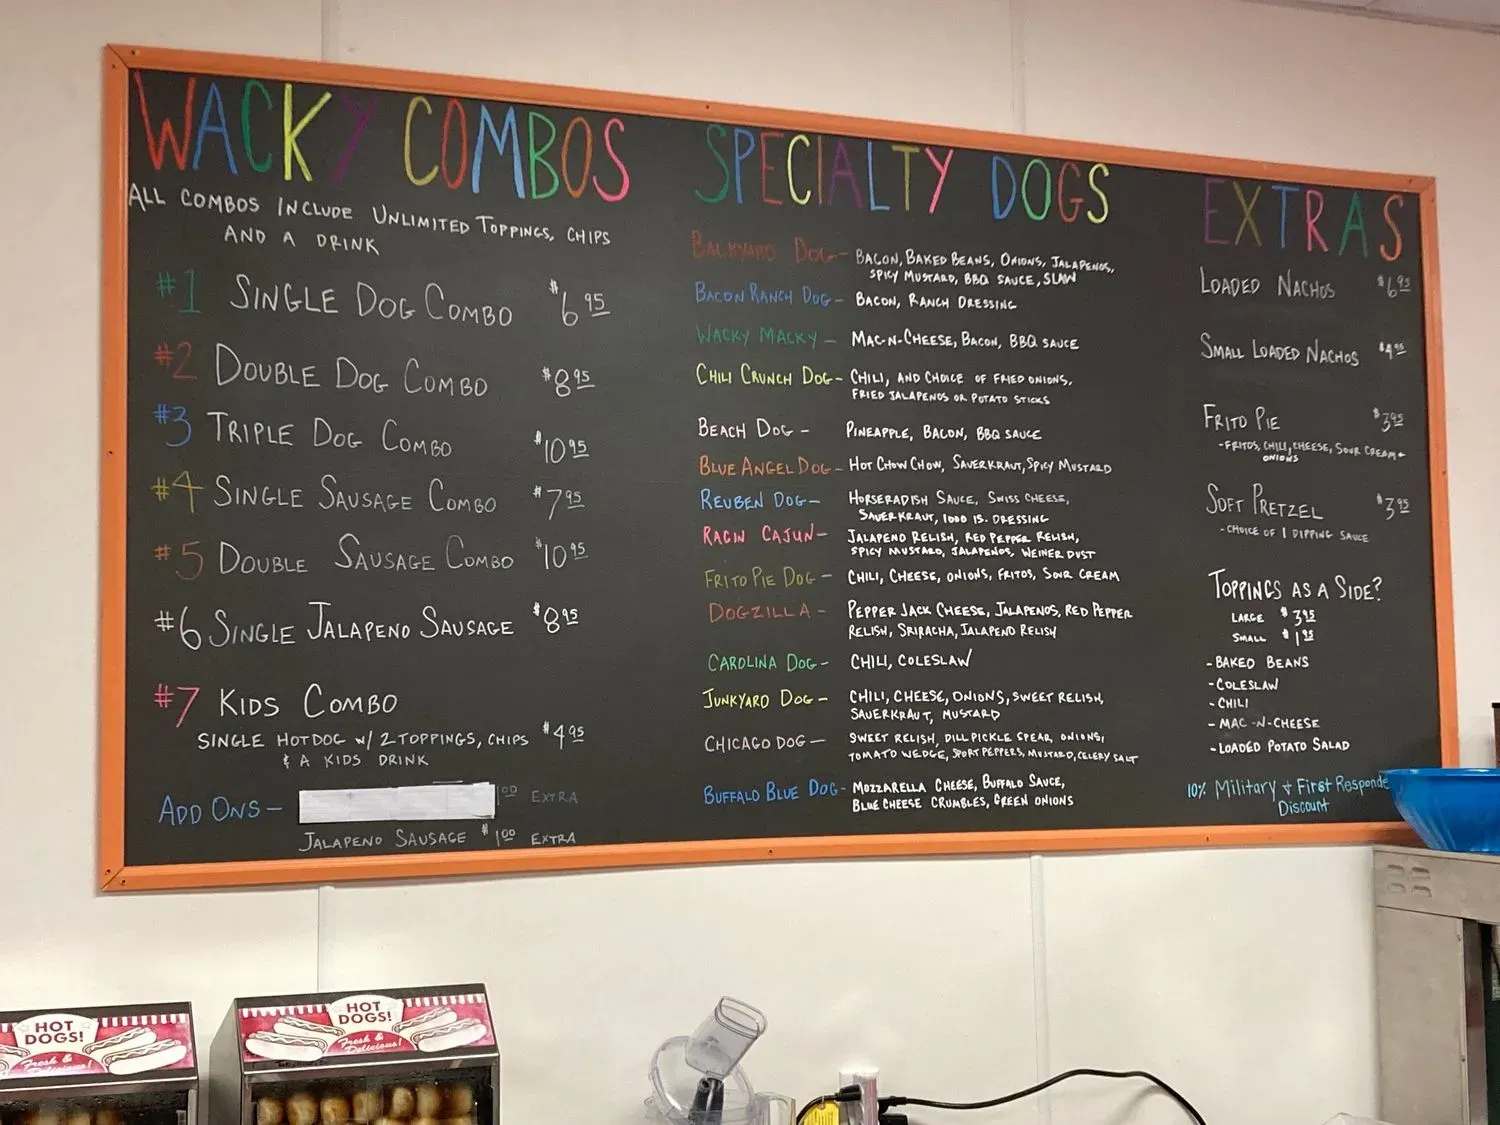 WACKY COMBOS
ALL COMBOS INCLUDE UNLIMITED TOPPINGS, CHIPS
AND A DRINK
#1 SINGLE DOG COMBO $6.95
#2 DOUBLE DOG COMBO $8.95
#3 TRIPLE DOG COMBO $10.95
#4 SINGLE SAUSAGE COMBO $7.95
#5 DOUBLE SAUSAGE COMBO $10.95
#6 SINGLE JALAPENO SAUSAGE $8.95
#7 KIDS COMBO
SINGLE HOTDOG W/ 2 TOPPINGS, CHIPS $4.95
& A KIDS DRINK
ADD ONS - 1.00 EXTRA
JALAPENO SAUSAGE $1.00 EXTRA
SPECIALTY DOGS
BACKYARD DOG - BACON, BAKED BEANS, ONIONS, JALAPENOS,
SPICY MUSTARD, BBQ SAUCE, SLAW
BACON RANCH DOG - BACON, RANCH DRESSING
WACKY MACKY - MAC-N-CHEESE, BACON, BBQ SAUCE
CHILI CRUNCH DOG - CHILI, AND CHOICE OF FRIED ONIONS,
FRIED JALAPENOS OR POTATO STICKS
BEACH DOG - PINEAPPLE, BACON, BBQ SAUCE
BLUE ANGEL DOG - HOT CHOW CHOW, SAUERKRAUT, SPICY MUSTARD
REUBEN DOG - HORSERADISH SAUCE, SWISS CHEESE,
SAUERKRAUT, 1000 IS. DRESSING
RAGIN CAJUN - JALAPENO RELISH, RED PEPPER RELISH,
SPICY MUSTARD, JALAPENOS, WEINER DUST
FRITO PIE DOG - CHILI, CHEESE, ONIONS, FRITOS, SOUR CREAM
DOGZILLA - PEPPER JACK CHEESE, JALAPENOS, RED PEPPER
RELISH, SRIRACHA, JALAPENO RELISH
CAROLINA DOG - CHILI, COLESLAW
JUNKYARD DOG - CHILI, CHEESE, ONIONS, SWEET RELISH,
SAUERKRAUT, MUSTARD
CHICAGO DOG - SWEET RELISH, DILL PICKLE SPEAR, ONIONS,
TOMATO WEDGE, SPORT PEPPERS, MUSTARD, CELERY SALT
BUFFALO BLUE DOG - MOZZARELLA CHEESE, BUFFALO SAUCE,
BLUE CHEESE CRUMBLES, GREEN ONIONS
EXTRAS
LOADED NACHOS $6.95
SMALL LOADED NACHOS $4.95
FRITO PIE $3.95
- FRITOS, CHILI, CHEESE, SOUR CREAM +
ONIONS
SOFT PRETZEL $3.95
- CHOICE OF 1 DIPPING SAUCE
TOPPINGS AS A SIDE?
LARGE $3.95
SMALL $1.95
- BAKED BEANS
- COLESLAW
- CHILI
- MAC-N-CHEESE
- LOADED POTATO SALAD
10% Military + First Responde
Discount
HOT
DOGS!
Fresh &
Delicious!
HOT
DOGS!
Fresh &
Delicious!